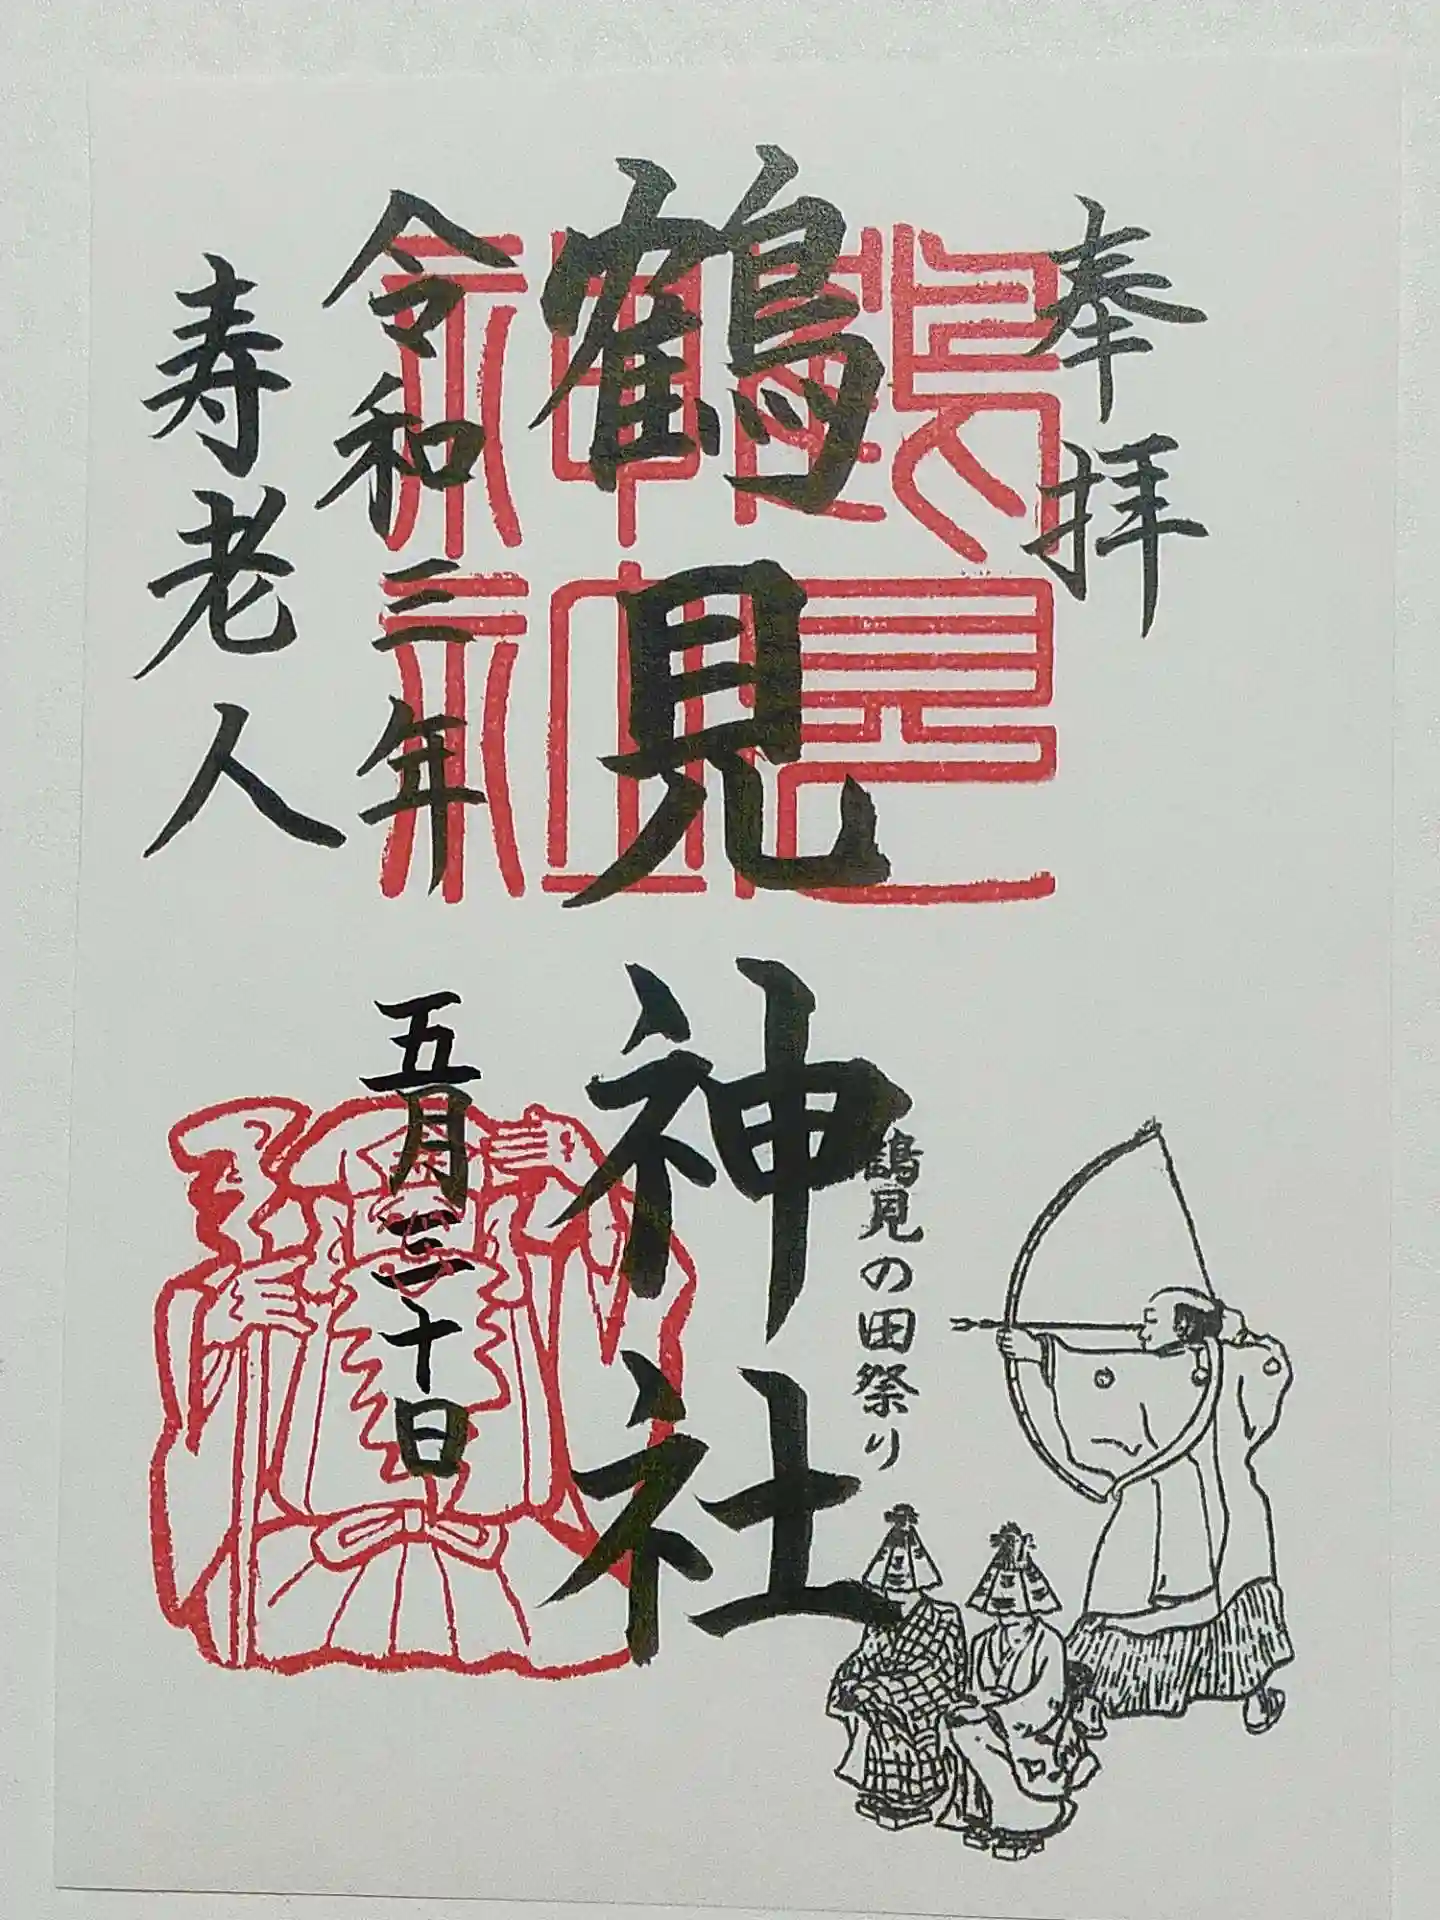 奉拝
鶴見神社
鶴見神社
鶴見の田祭り
令和三年五月三十日
寿老人